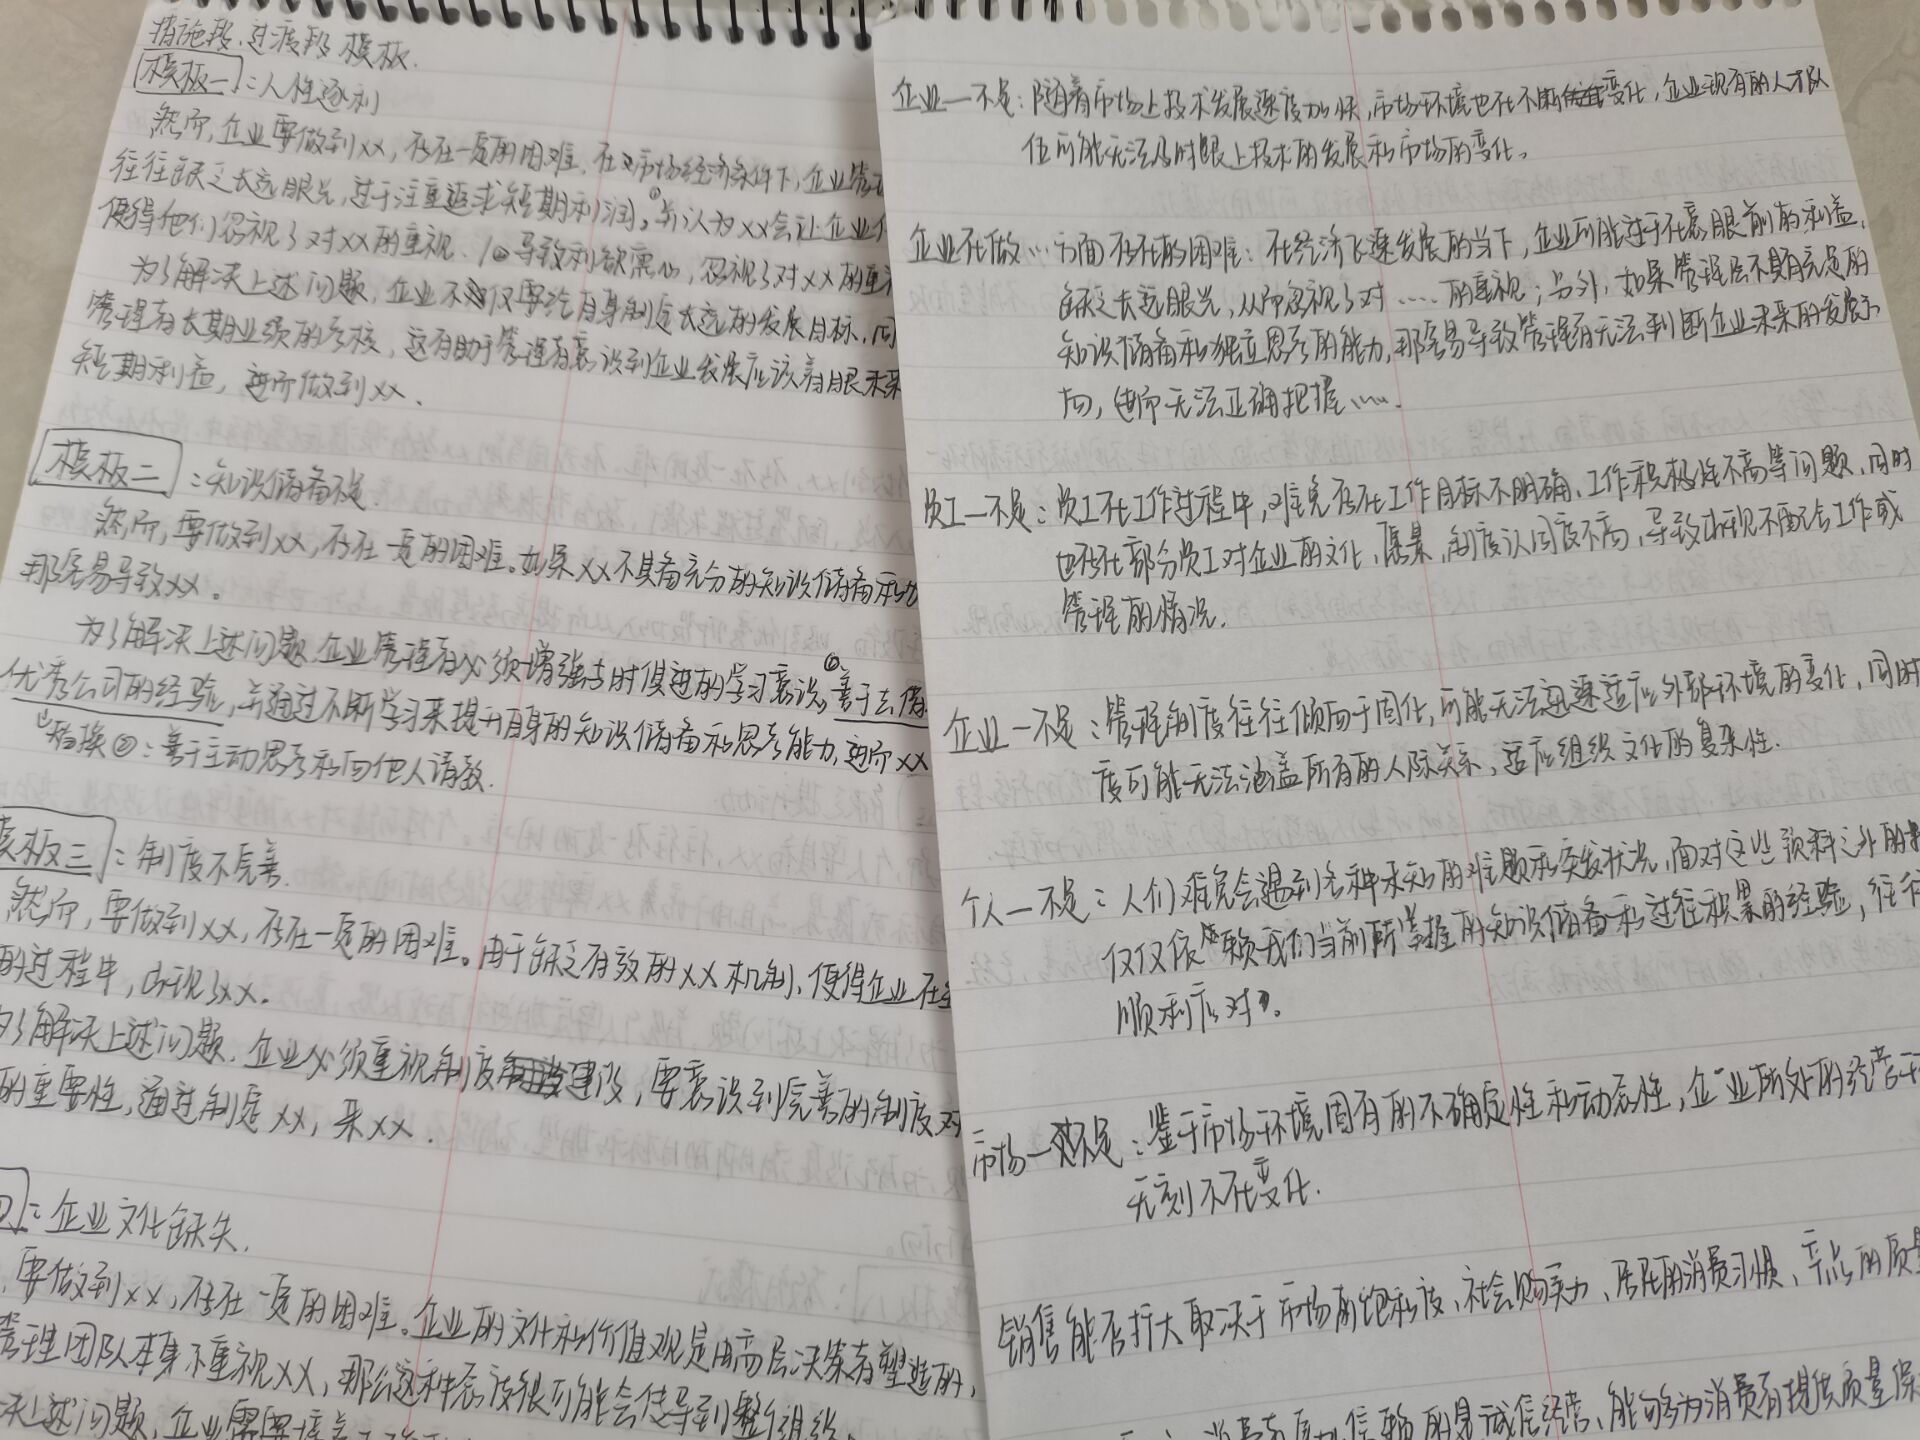 措施段、过渡段模板.
模板一：人性逐利
然而，企业要做到XX，存在一定的困难。在市场经济条件下，企业管理
往往缺乏长远眼光，过于注重追求短期利润。①并认为XX会让企业
使得他们忽视了对XX的重视. ②导致利欲熏心，忽视了对XX的重
为了解决上述问题，企业不仅要给自身制定长远的发展目标，同
管理者长期业绩的考核，这有助于管理者意识到企业发展应该着眼未来
短期利益，进而做到XX.
模板二：知识储备不足.
然而，要做到XX，存在一定的困难。如果XX不具备充分的知识储备和
那容易导致XX。
为了解决上述问题，企业管理者必须增强与时俱进的学习意识，①善于去借
优秀公司的经验，并通过不断学习来提升自身的知识储备和思考能力，进而XX
替换②：善于主动思考和向他人请教.
模板三：制度不完善.
然而，要做到XX，存在一定的困难。由于缺乏有效的XX机制，使得企业在
的过程中，出现了XX.
为了解决上述问题，企业必须重视制度建设，要意识到完善的制度对
的重要性，通过制定XX，来XX.
：企业文化缺失.
，要做到XX，存在一定的困难。企业的文化和价值观是由高层决策者塑造的，
管理团队本身不重视XX，那么这种态度很可能会传导到整个组织。
决上述问题，企业需要培养
企业—不足：随着市场上技术发展速度加快，市场环境也在不断变化，企业现有的人才队
伍可能无法及时跟上技术的发展和市场的变化。
企业在做…方面存在的困难：在经济飞速发展的当下，企业可能过于在意眼前的利益，
缺乏长远眼光，从而忽视了对……的重视；另外，如果管理层不具有充足的
知识储备和独立思考的能力，那容易导致管理者无法判断企业未来的发展方
向，进而无法正确把握…….
员工—不足：员工在工作过程中，难免存在工作目标不明确、工作积极性不高等问题，同时
也存在部分员工对企业的文化，愿景，制度认同度不高，导致出现不配合工作或
管理的情况.
企业—不足：管理制度往往倾向于固化，可能无法迅速适应外部环境的变化，同时
度可能无法涵盖所有的人际关系，适应组织文化的复杂性.
个人—不足：人们难免会遇到各种未知的难题和突发状况，面对这些预料之外的
仅仅依赖我们当前所掌握的知识储备和过往积累的经验，往往
顺利应对.
市场—不足：鉴于市场环境固有的不确定性和动态性，企业所处的经营环
无刻不在变化.
销售能否扩大取决于市场的饱和度、社会购买力、居民的消费习惯、产品的质量
消费者更加信赖的是诚信经营、能够为消费者提供质量保